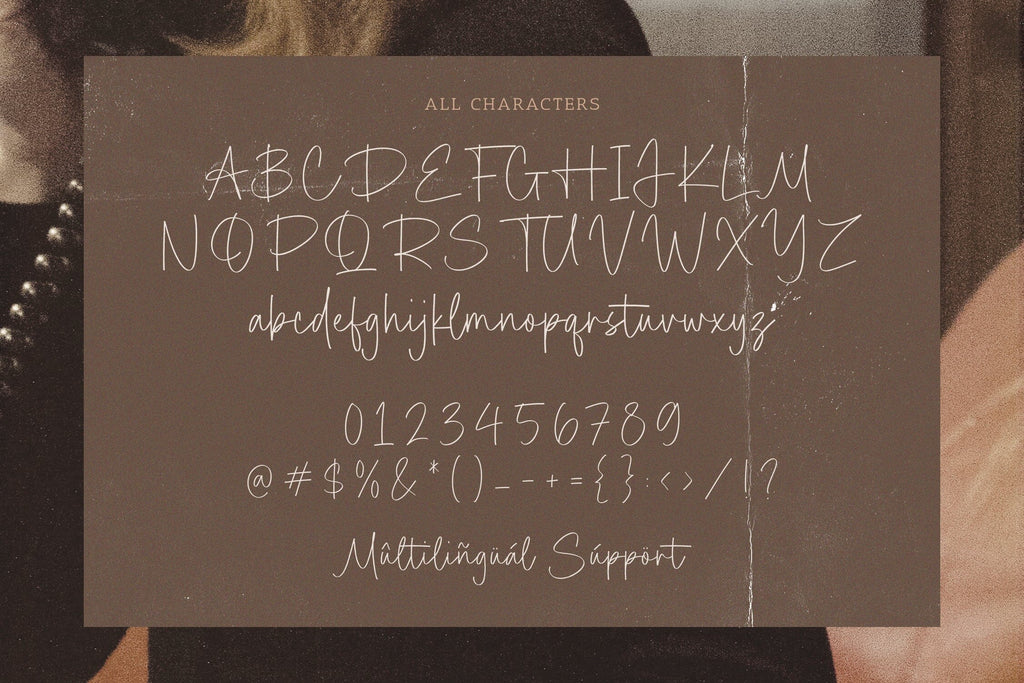 ALL CHARACTERS
ABCDEFGHIJKLM
NOPQRSTUVWXYZ
abcdefghijklmnopqrstuvwxyz
0123456789
@#$%&*()_-+={}:<>/!?
Mûltiliñgüál Súppört